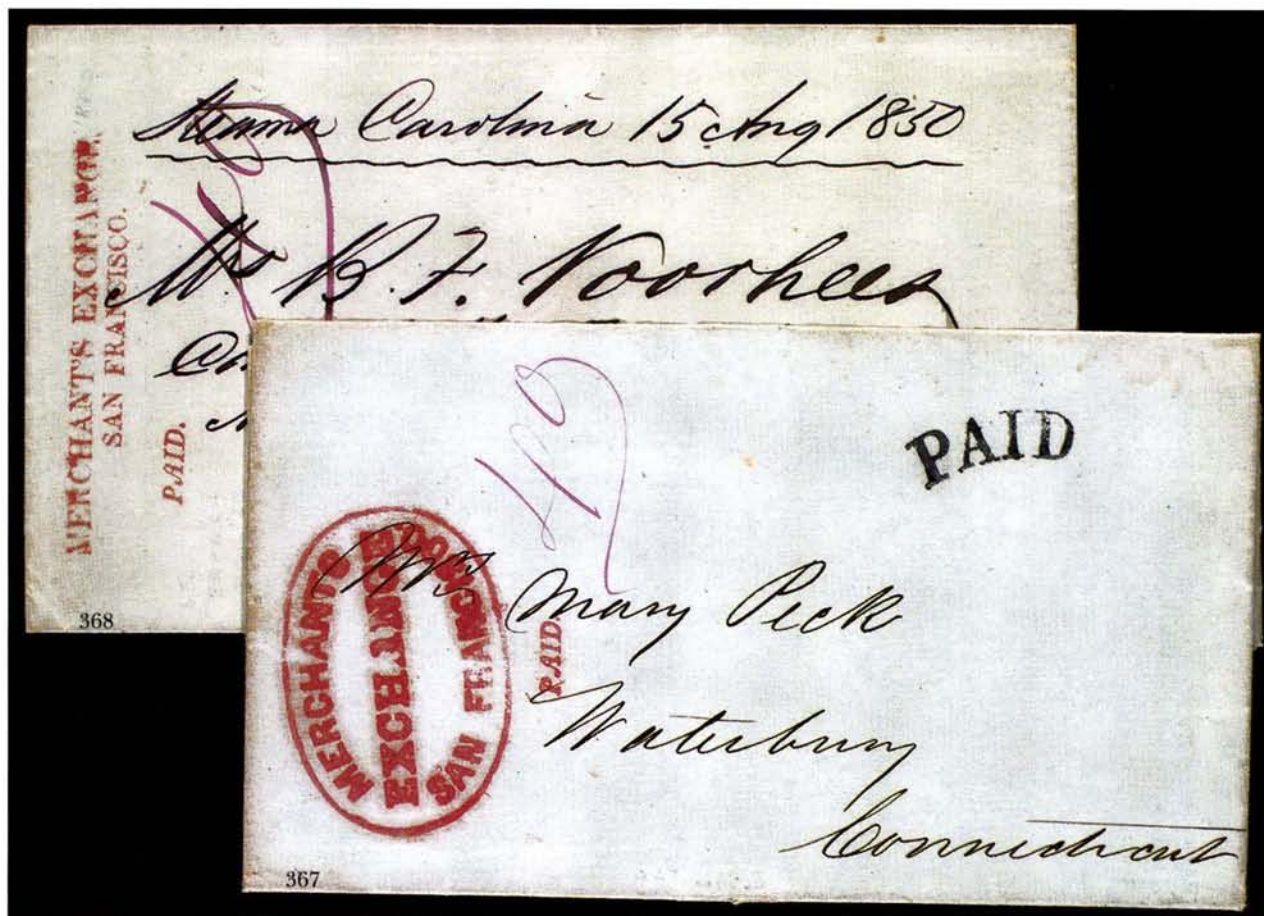 Steamer Carolina 15 Aug 1850
MERCHANT'S EXCHANGE.
SAN FRANCISCO.
PAID.
B. F. Voorhees
368
40
PAID
MERCHANTS
EXCHANGE
SAN FRANCISCO
PAID.
Mrs Mary Peck
Waterbury
Connecticut
367